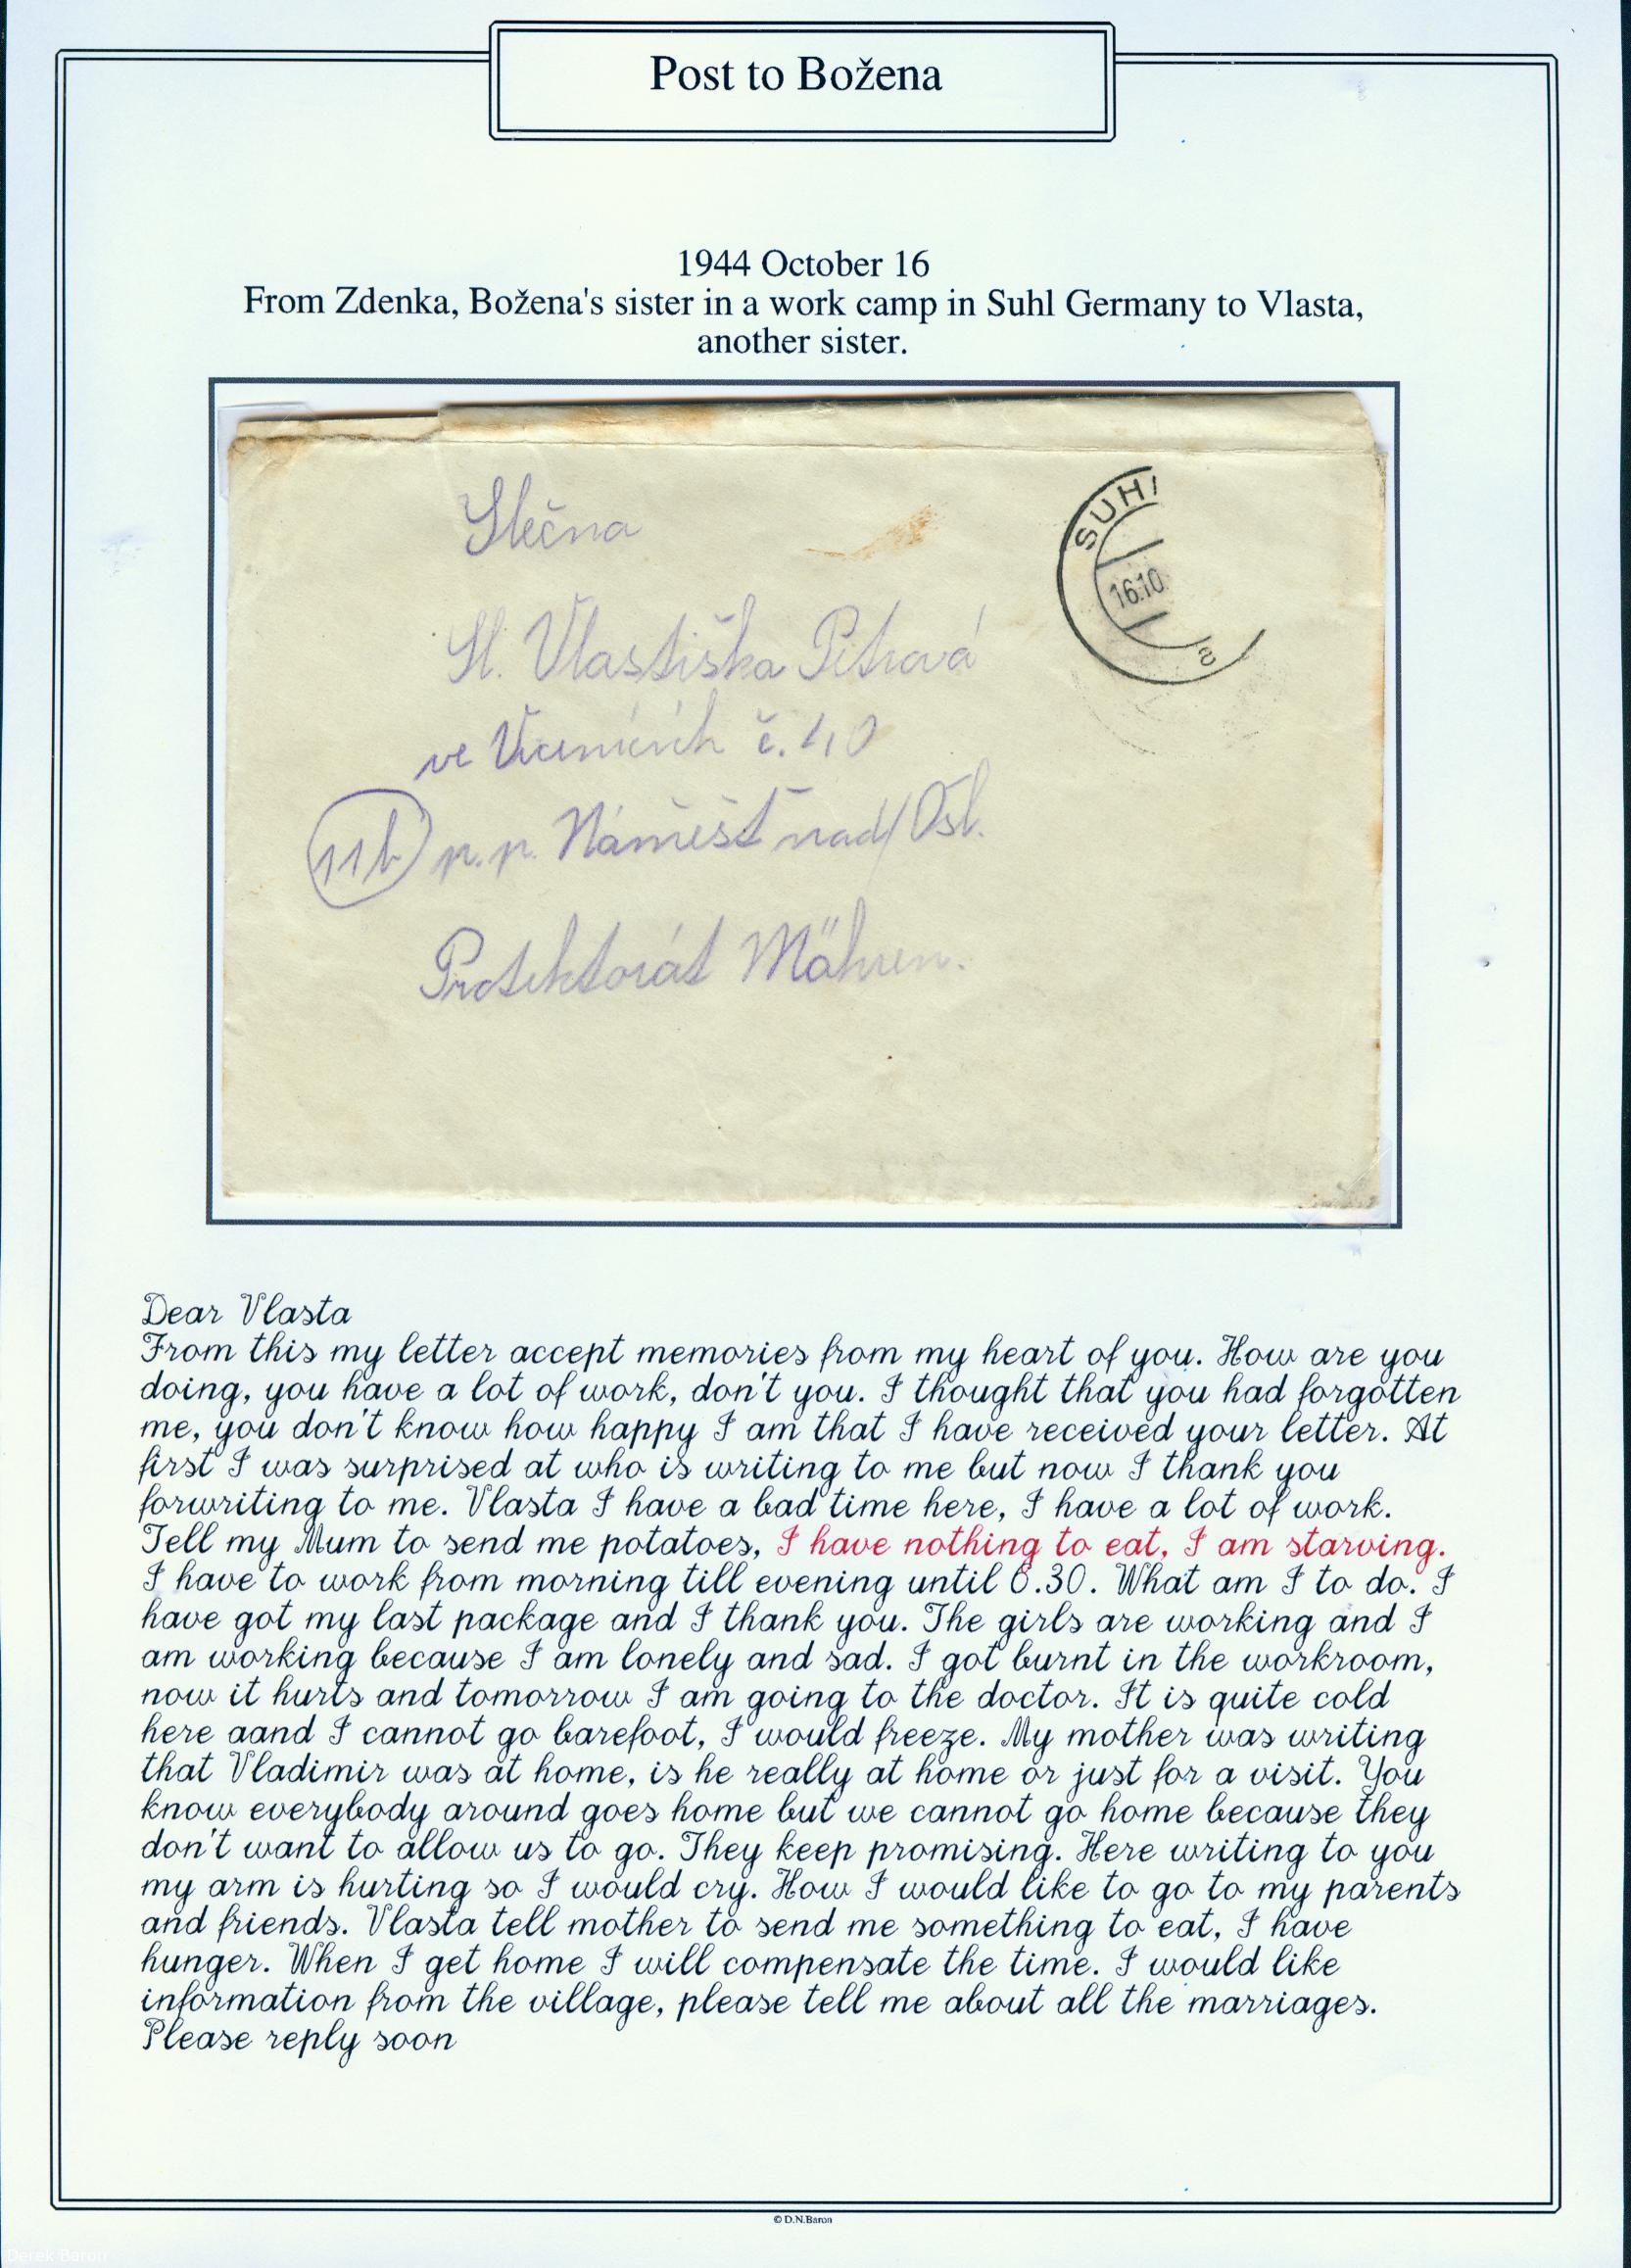 Post to Božena
1944 October 16
From Zdenka, Božena's sister in a work camp in Suhl Germany to Vlasta,
another sister.
Slečna
SUHl
16.10
a
Sl. Vlastiška Petrová
ve č. 40
11b p.p. Náměšť nad/Osl.
Protektorát Mähren.
Dear Vlasta
From this my letter accept memories from my heart of you. How are you
doing, you have a lot of work, don't you. I thought that you had forgotten
me, you don't know how happy I am that I have received your letter. At
first I was surprised at who is writing to me but now I thank you
forwriting to me. Vlasta I have a bad time here, I have a lot of work.
Tell my Mum to send me potatoes, I have nothing to eat, I am starving.
I have to work from morning till evening until 6.30. What am I to do. I
have got my last package and I thank you. The girls are working and I
am working because I am lonely and sad. I got burnt in the workroom,
now it hurts and tomorrow I am going to the doctor. It is quite cold
here aand I cannot go barefoot, I would freeze. My mother was writing
that Vladimir was at home, is he really at home or just for a visit. You
know everybody around goes home but we cannot go home because they
don't want to allow us to go. They keep promising. Here writing to you
my arm is hurting so I would cry. How I would like to go to my parents
and friends. Vlasta tell mother to send me something to eat, I have
hunger. When I get home I will compensate the time. I would like
information from the village, please tell me about all the marriages.
Please reply soon
© D.N.Baron
Derek Baron